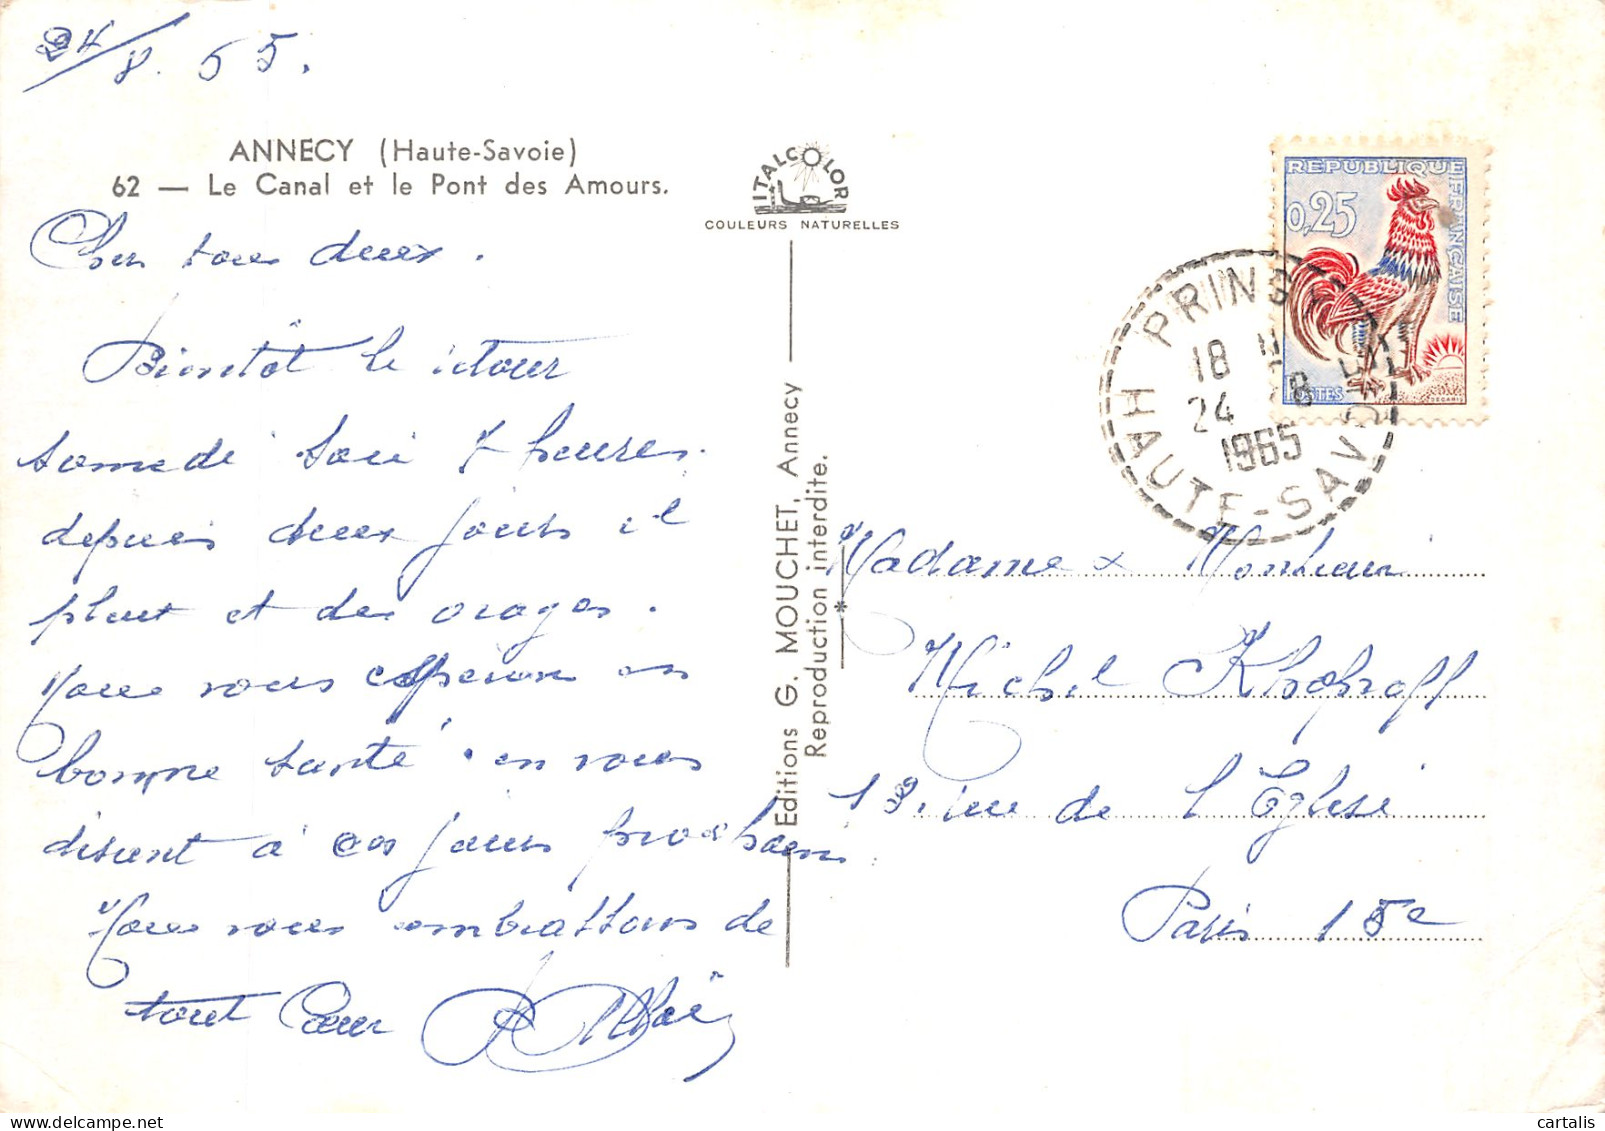 24/8. 65.
ANNECY (Haute-Savoie)
62 — Le Canal et le Pont des Amours.
ITALCOLOR
COULEURS NATURELLES
Cher tous deux.
Bientôt le retour
samedi soir 7 heures.
depuis deux jours il
pleut et des orages.
Nous vous espérons en
bonne santé. en vous
disant à ces jours prochains
Nous vous embrassons de
tout Cœur
Editions G. MOUCHET, Annecy
Reproduction interdite.
REPUBLIQUE FRANÇAISE
0,25
POSTES
DECARIS
PRING
18 H
24 8
1965
HAUTE-SAVOIE
Madame & Monsieur
Michel
13. rue de l'Eglise
Paris 15e
cartalis